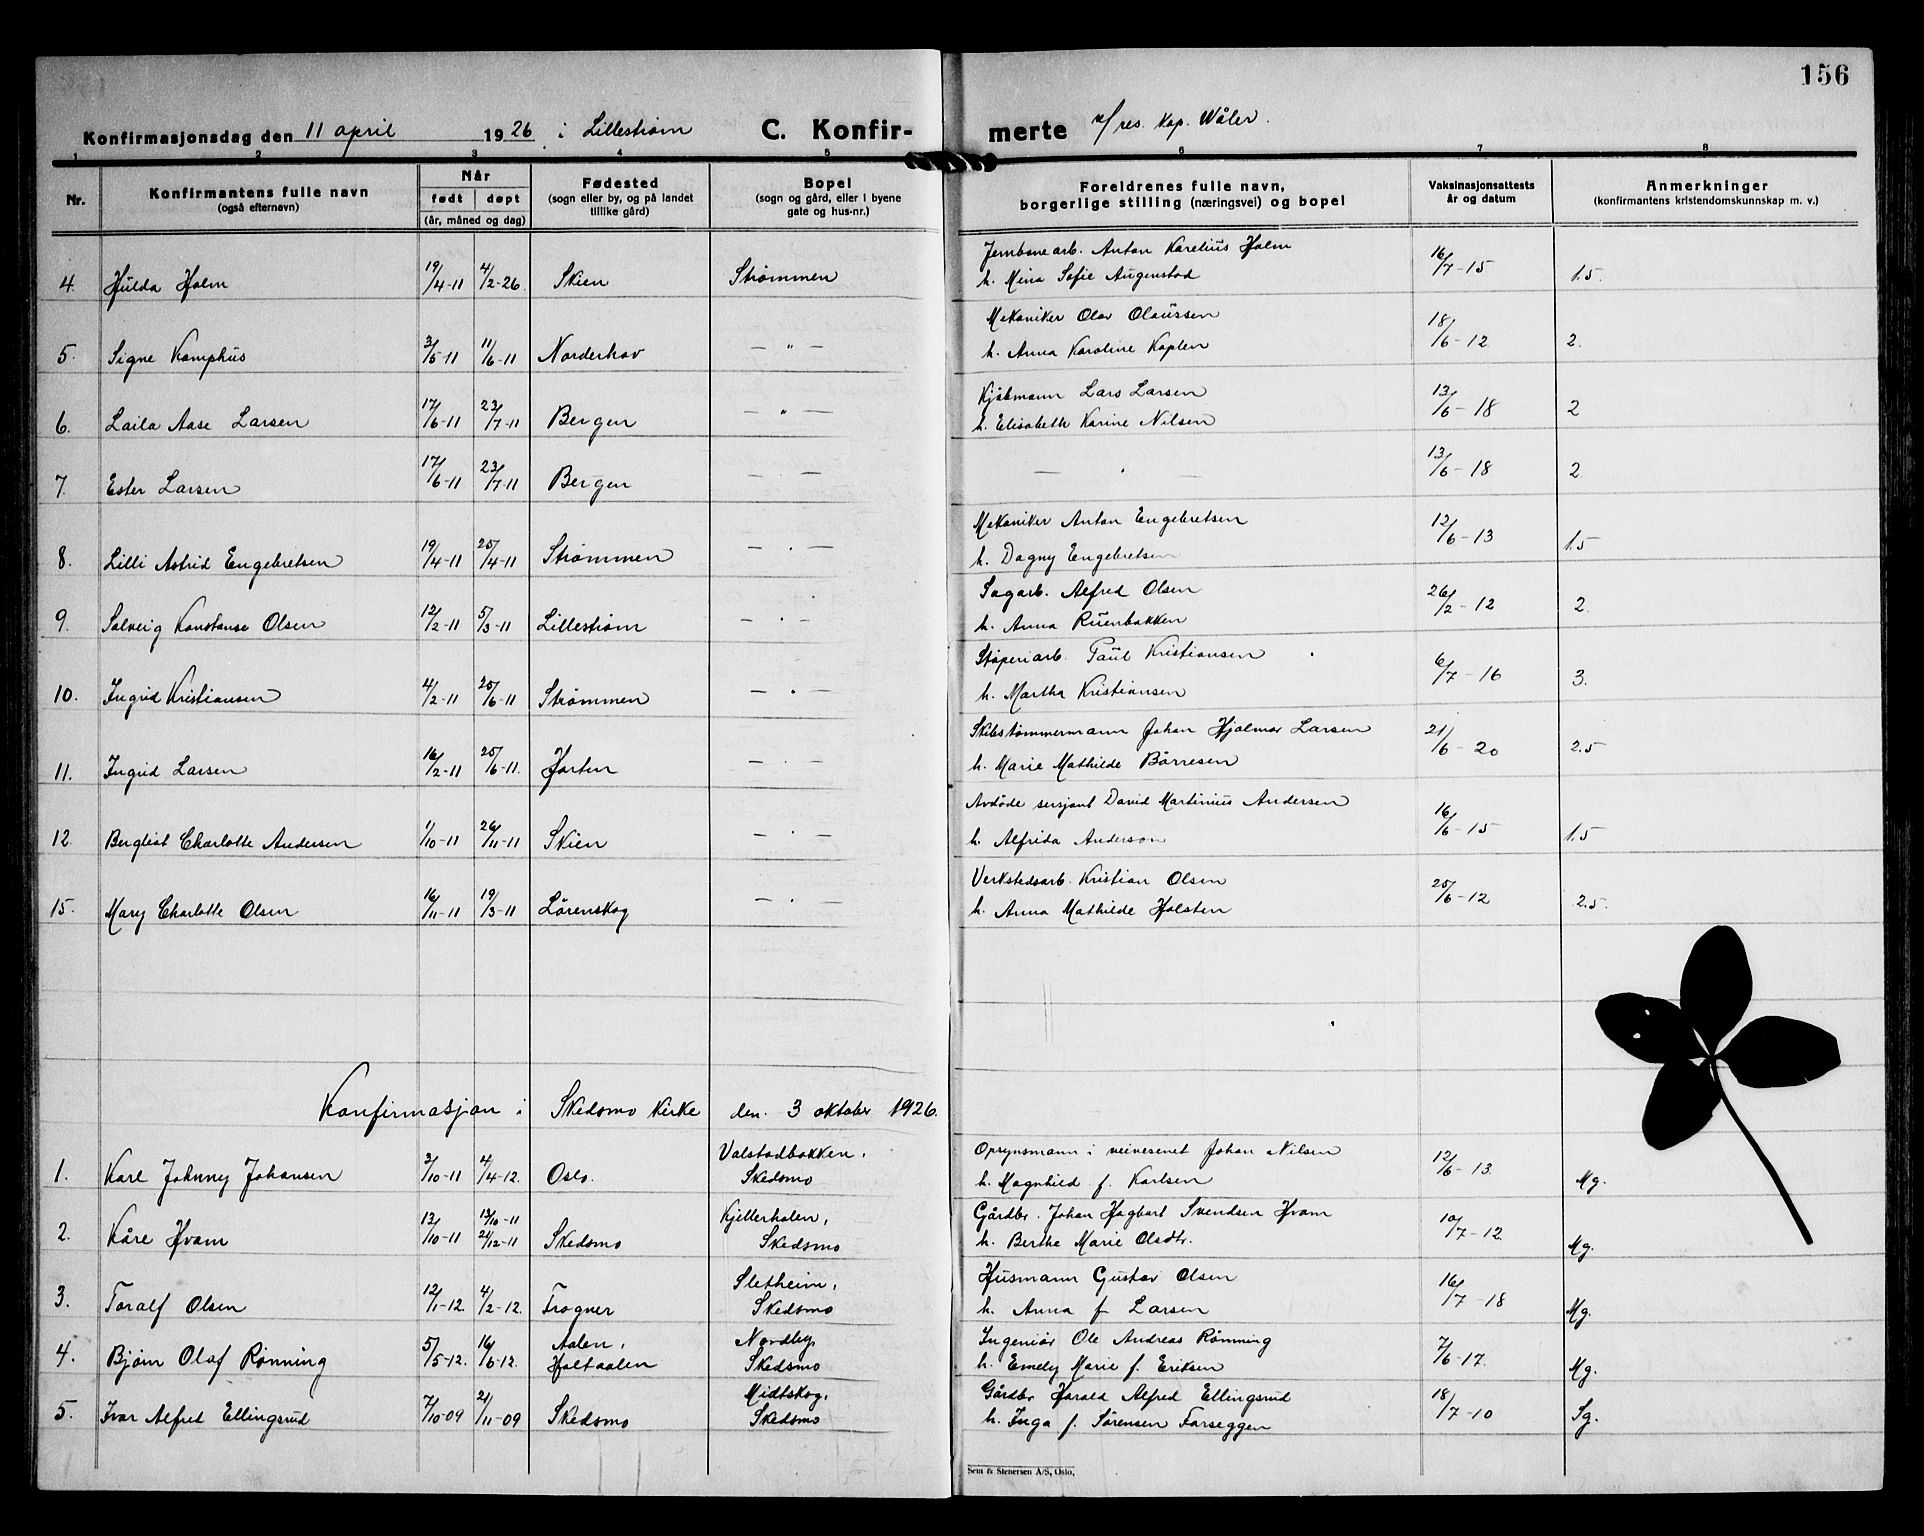 156
Konfirmasjonsdag den 11 april 1926 i Lillestrøm C. Konfir- merte v/ res. kap. Wåler.
1 2 3 4 5 6 7 8
Nr. Konfirmantens fulle navn (også efternavn) Når født døpt (år, måned og dag) Fødested (sogn eller by, og på landet tillike gård) Bopel (sogn og gård, eller i byene gate og hus-nr.) Foreldrenes fulle navn, borgerlige stilling (næringsvei) og bopel Vaksinasjonsattests år og datum Anmerkninger (konfirmantens kristendomskunnskap m. v.)
Jernbanearb. Anton Karelius Holm
4. Hulda Holm 19/4-11 4/2-26. Skien Strømmen h. Mina Sofie Augenstad 16/7-15 1.5.
Mekaniker Olav Olaussen
5. Signe Kamphus 3/5-11 11/6-11 Norderhov — " — h. Anna Karoline Kaplen 18/6-12 2.
Kjøbmann Lars Larsen
6. Laila Aase Larsen 17/6-11 23/7-11 Bergen — " — h. Elisabeth Karine Nilsen 13/6-18 2
7. Ester Larsen 17/6-11 23/7-11 Bergen — . — — " 13/6-18 2.
Mekaniker Anton Engebretsen
8. Lilli Astrid Engebretsen 19/4-11 25/4-11 Strømmen — . — h. Dagny Engebretsen 12/6-13 1.5
Sagarb. Alfred Olsen
9. Solveig Konstanse Olsen 12/2-11 5/3-11 Lillestrøm — . — h. Anna Ruenbakken 26/2-12 2.
Støperiarb. Paul Kristiansen
10. Ingrid Kristiansen 4/2-11 25/6-11 Strømmen — . — h. Martha Kristiansen 6/7-16 3.
Skibstømmermann Johan Hjalmar Larsen
11. Ingrid Larsen 16/2-11 25/6-11. Horten — . — h. Marie Mathilde Børresen 21/6-20 2.5
Avdøde sersjant David Martinius Andersen
12. Bergliot Charlotte Andersen 1/10-11 26/11-11 Skien — . — h. Alfrida Anderson 16/6-15 1.5
Verkstedsarb. Kristian Olsen
15. Mary Charlotte Olsen 16/11-11 19/3-11 Lørenskog — . — h. Anna Mathilde Holsten 25/6-12 2.5.
Konfirmasjon i Skedsmo kirke den. 3 oktober 1926.
Valstadbakken, Opsynsmann i veivesenet Johan Nilsen
1. Karl Johnny Johansen 3/10-11 4/4-12. Oslo. Skedsmo h. Magnhild f. Karlsen 12/6-13. Mg.
13/10-11 Kjellerholen, Gårdbr. Johan Hagbart Svendsen Hvam
2. Kåre Hvam 13/10-11 21/12-11 Skedsmo Skedsmo h. Berthe Marie Olsdtr. 10/7-12 Mg.
Sletheim, Husmann Gustav Olsen
3. Toralf Olsen 12/1-12. 4/2-12. Frogner Skedsmo h. Anna f. Larsen 16/7-18 Mg.
Aalen, Nordby, Ingeniør Ole Andreas Rønning
4. Bjørn Olaf Rønning 5/5-12. 16/6-12. Holtaalen Skedsmo h. Emely Marie f. Eriksen 7/6-17. Mg.
Midtskog, Gårdbr Harald Alfred Ellingsrud
5. Ivar Alfred Ellingsrud 7/10-09 21/11-09 Skedsmo Skedsmo h. Inga f. Sørensen Farseggen 18/7-10 Sg.
Sem & Stenersen A/S, Oslo.